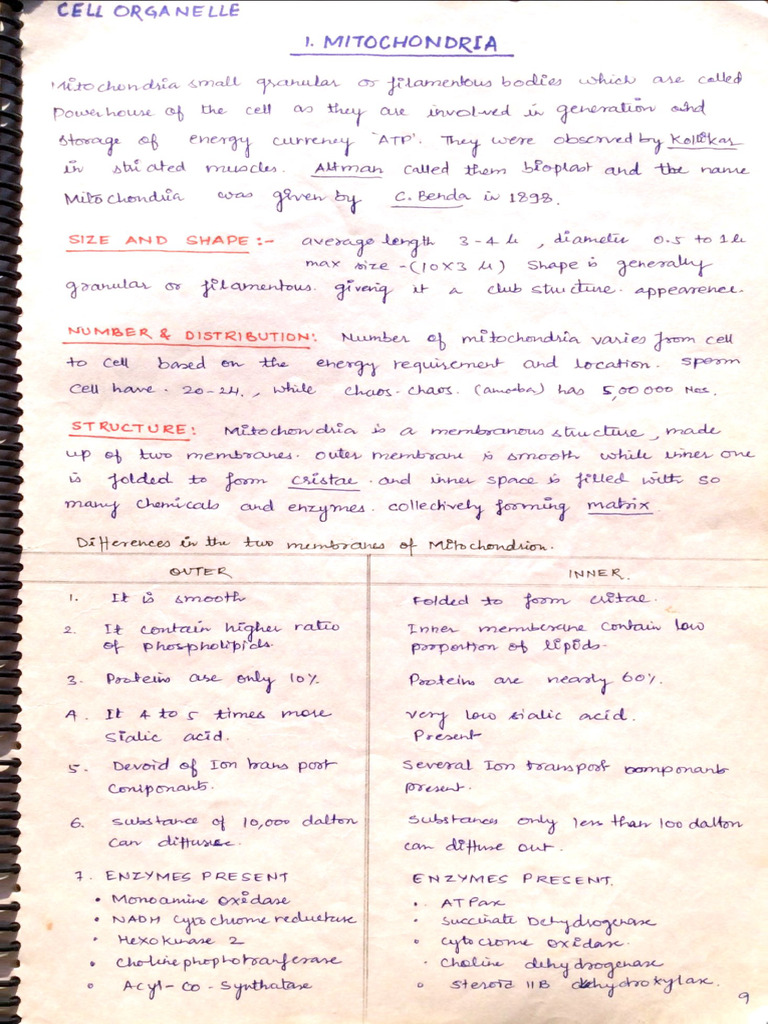 CELL ORGANELLE
1. MITOCHONDRIA
Mitochondria small granular or filamentous bodies which are called
Powerhouse of the cell as they are involved in generation and
Storage of energy currency 'ATP'. They were observed by Kollikar
in striated muscles. Altman called them bioplast and the name
Mitochondria was given by C. Benda in 1898.
SIZE AND SHAPE :- average length 3-4 µ, diameter 0.5 to 1µ
max size - (10X3 µ) Shape is generally
granular or filamentous. giving it a club structure. appearence.
NUMBER & DISTRIBUTION: Number of mitochondria varies from cell
to cell based on the energy requirement and location. Sperm
cell have. 20-24., while chaos-chaos. (amoeba) has 5,00000 Nos.
STRUCTURE: Mitochondria is a membranous structure, made
up of two membranes. outer membrane is smooth while inner one
is folded to form cristae and inner space is filled with so
many chemicals and enzymes. collectively forming matrix.
Differences in the two membranes of Mitochondrion.
OUTER INNER.
1. It is smooth Folded to form critae.
2. It contain higher ratio Inner membrane contain low
of phospholipids. proportion of lipids.
3. Proteins are only 10% Proteins are nearly 60%.
4. It 4 to 5 times more very low sialic acid.
Sialic acid. Present
5. Devoid of Ion trans port Several Ion transport componants
Componants. present.
6. Substance of 10,000 dalton Substances only less than 100 dalton
can diffuse. can diffuse out.
7. ENZYMES PRESENT ENZYMES PRESENT.
• Monoamine oxidase • ATPase
• NADH Cytochrome reductase • Succinate Dehydrogenase
• Hexokinase 2 • cytocrome oxidase.
• Choline phophotranferase • Choline dehydrogenase
• Acyl-Co-Synthatase • Steroid 11B dehydroxylase.
9